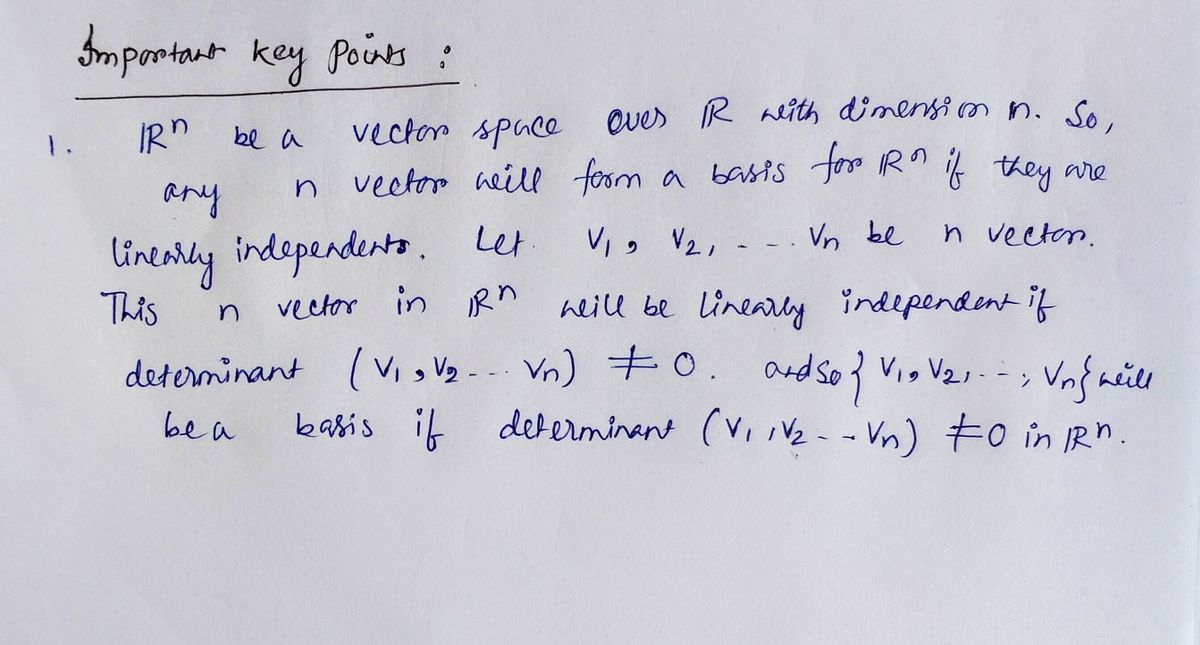 Important key points :
1. ℝⁿ be a vector space over ℝ with dimension n. So,
any n vector will form a basis for ℝⁿ if they are
linearly independents. Let V₁, V₂, - - - Vₙ be n vectors.
This n vector in ℝⁿ will be linearly independent if
determinant (V₁, V₂ - - - Vₙ) ≠ 0. and so { V₁, V₂, - - , Vₙ} will
be a basis if determinant (V₁, V₂ - - Vₙ) ≠ 0 in ℝⁿ.